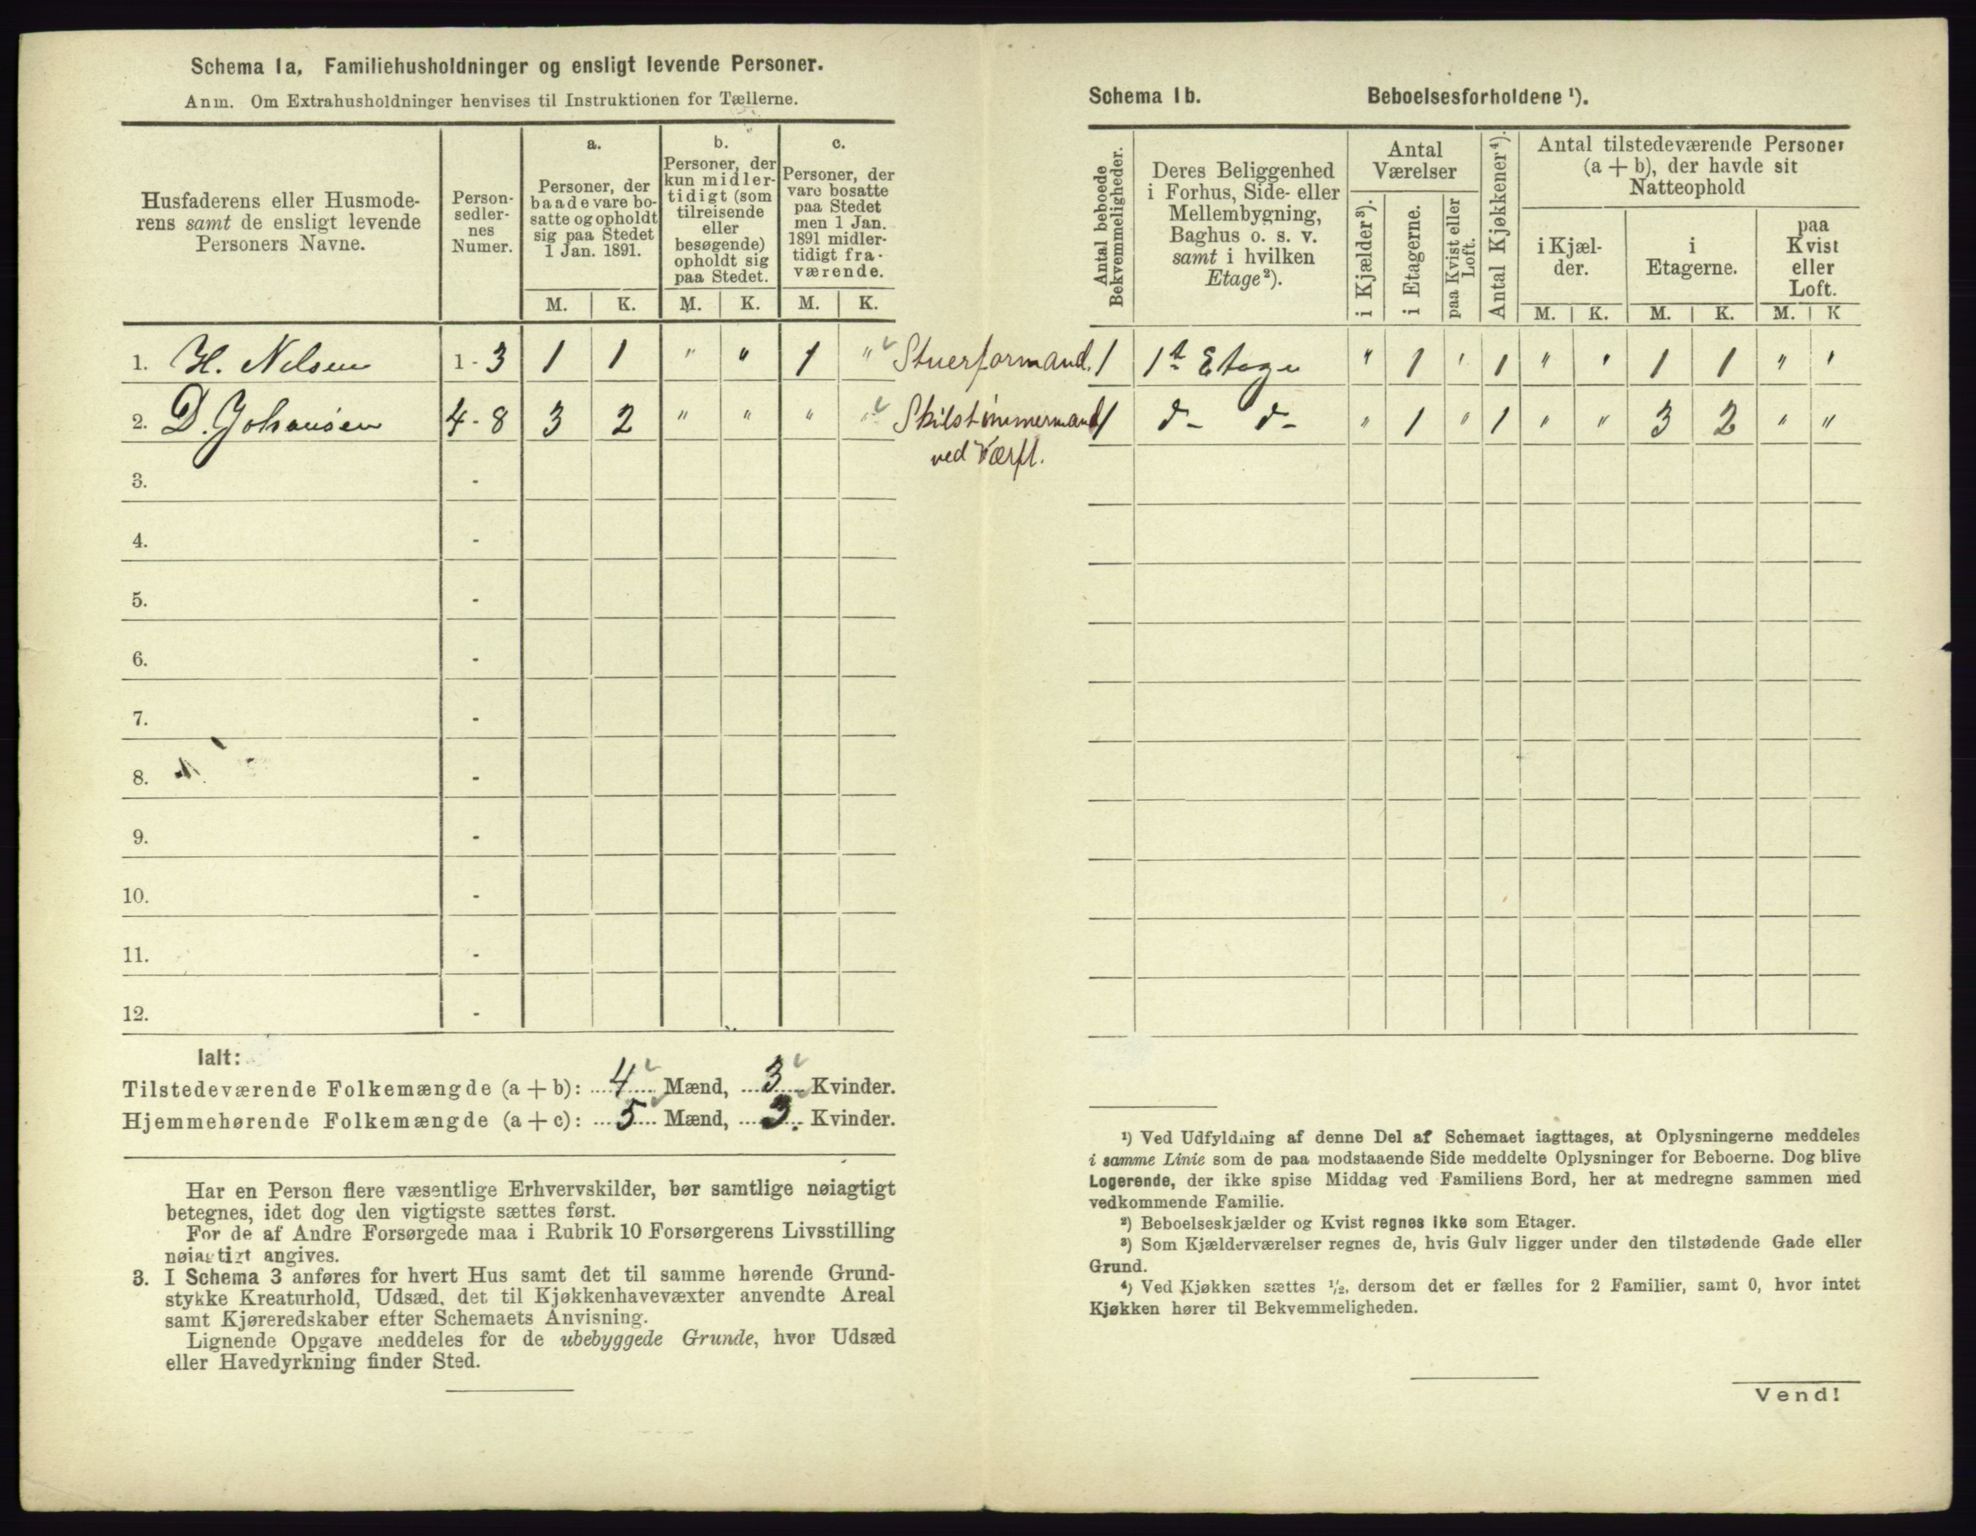 Schema 1a. Familiehusholdninger og ensligt levende Personer.
Anm. Om Extrahusholdninger henvises til Instruktionen for Tællerne.
Husfaderens eller Husmode-
rens samt de ensligt levende
Personers Navne.
Person-
sedler-
nes
Numer.
a.
Personer, der
baade vare bo-
satte og opholdt
sig paa Stedet
1 Jan. 1891.
b.
Personer, der
kun midler-
tidigt (som
tilreisende
eller
besøgende)
opholdt sig
paa Stedet.
c.
Personer, der
vare bosatte
paa Stedet
men 1 Jan.
1891 midler-
tidigt fra-
værende.
M. K. M. K. M. K.
1. H. Nilsen 1-3 1 1 " " 1 " Stuerformand.
2. D. Johansen 4-8 3 2 " " " " Skibstømmermand
ved Værft.
3. -
4. -
5. -
6. -
7. -
8. -
9. -
10. -
11. -
12. -
Ialt:
Tilstedeværende Folkemængde (a + b): 4 Mænd, 3 Kvinder.
Hjemmehørende Folkemængde (a + c): 5 Mænd, 3. Kvinder.
Har en Person flere væsentlige Erhvervskilder, bør samtlige nøiagtigt
betegnes, idet dog den vigtigste sættes først.
For de af Andre Forsørgede maa i Rubrik 10 Forsørgerens Livsstilling
nøiagtigt angives.
3. I Schema 3 anføres for hvert Hus samt det til samme hørende Grund-
stykke Kreaturhold, Udsæd, det til Kjøkkenhavevæxter anvendte Areal
samt Kjøreredskaber efter Schemaets Anvisning.
Lignende Opgave meddeles for de ubebyggede Grunde, hvor Udsæd
eller Havedyrkning finder Sted.
Schema 1b. Beboelsesforholdene ¹).
Antal beboede
Bekvemmeligheder.
Deres Beliggenhed
i Forhus, Side- eller
Mellembygning,
Baghus o. s. v.
samt i hvilken
Etage ²).
Antal
Værelser
i Kjælder ³).
i Etagerne.
paa Kvist eller
Loft.
Antal Kjøkkener ⁴).
Antal tilstedeværende Personer
(a + b), der havde sit
Natteophold
i Kjæl-
der.
i
Etagerne.
paa
Kvist
eller
Loft.
M. K. M. K. M. K
1 1st Etage " 1 " 1 " " 1 1 " "
1 d- d- " 1 " 1 " " 3 2 " "
¹) Ved Udfyldning af denne Del af Schemaet iagttages, at Oplysningerne meddeles
i samme Linie som de paa modstaaende Side meddelte Oplysninger for Beboerne. Dog blive
Logerende, der ikke spise Middag ved Familiens Bord, her at medregne sammen med
vedkommende Familie.
²) Beboelseskjælder og Kvist regnes ikke som Etager.
³) Som Kjælderværelser regnes de, hvis Gulv ligger under den tilstødende Gade eller
Grund.
⁴) Ved Kjøkken sættes ½, dersom det er fælles for 2 Familier, samt 0, hvor intet
Kjøkken hører til Bekvemmeligheden.
Vend!